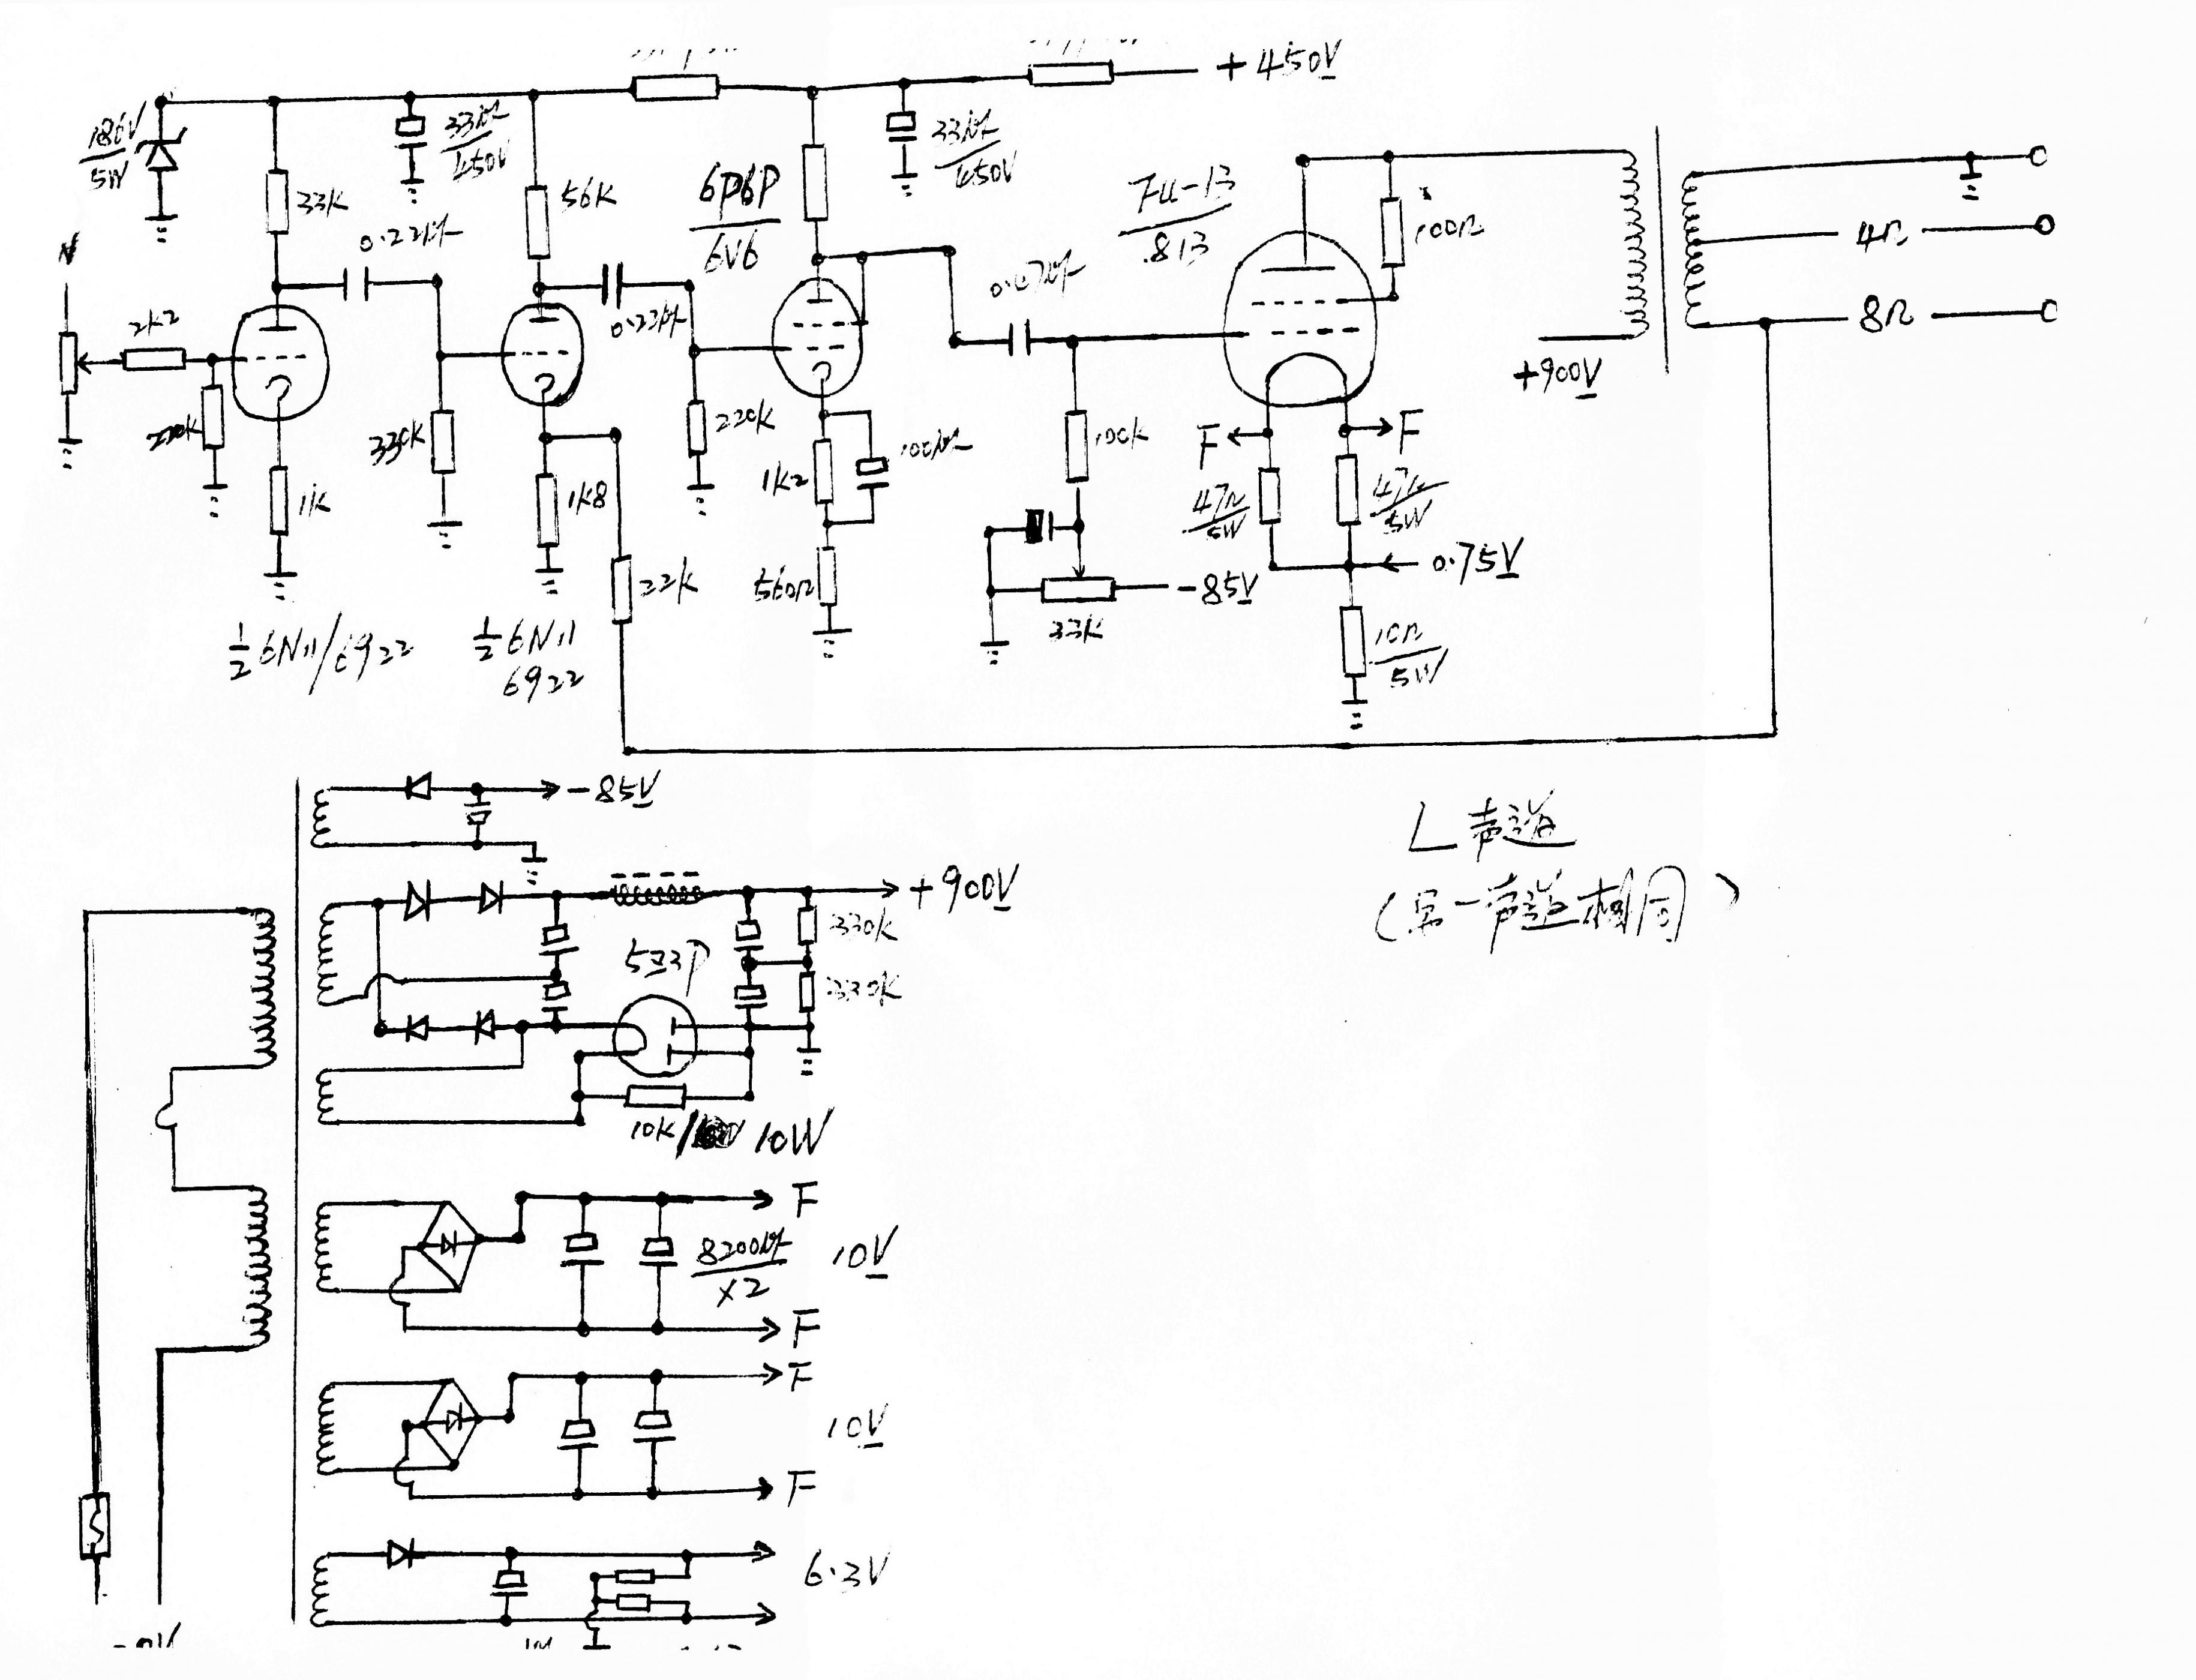 +450V
186V
5W
33K
33μF
450V
56K
6P6P
6V6
33μF
450V
FU-13
813
100Ω
4Ω
8Ω
+900V
0.22μF
0.22μF
2k2
220K
1K
330K
1K8
22K
220K
1K2
100μF
560Ω
100K
33K
-85V
F
F
47Ω
5W
47Ω
5W
0.75V
10Ω
5W
½ 6N11/6922
½ 6N11
6922
L声道
(另一声道相同)
-85V
+900V
5Z3P
330K
330K
10K/
10W
F
8200μF
×2
10V
F
F
10V
F
6.3V